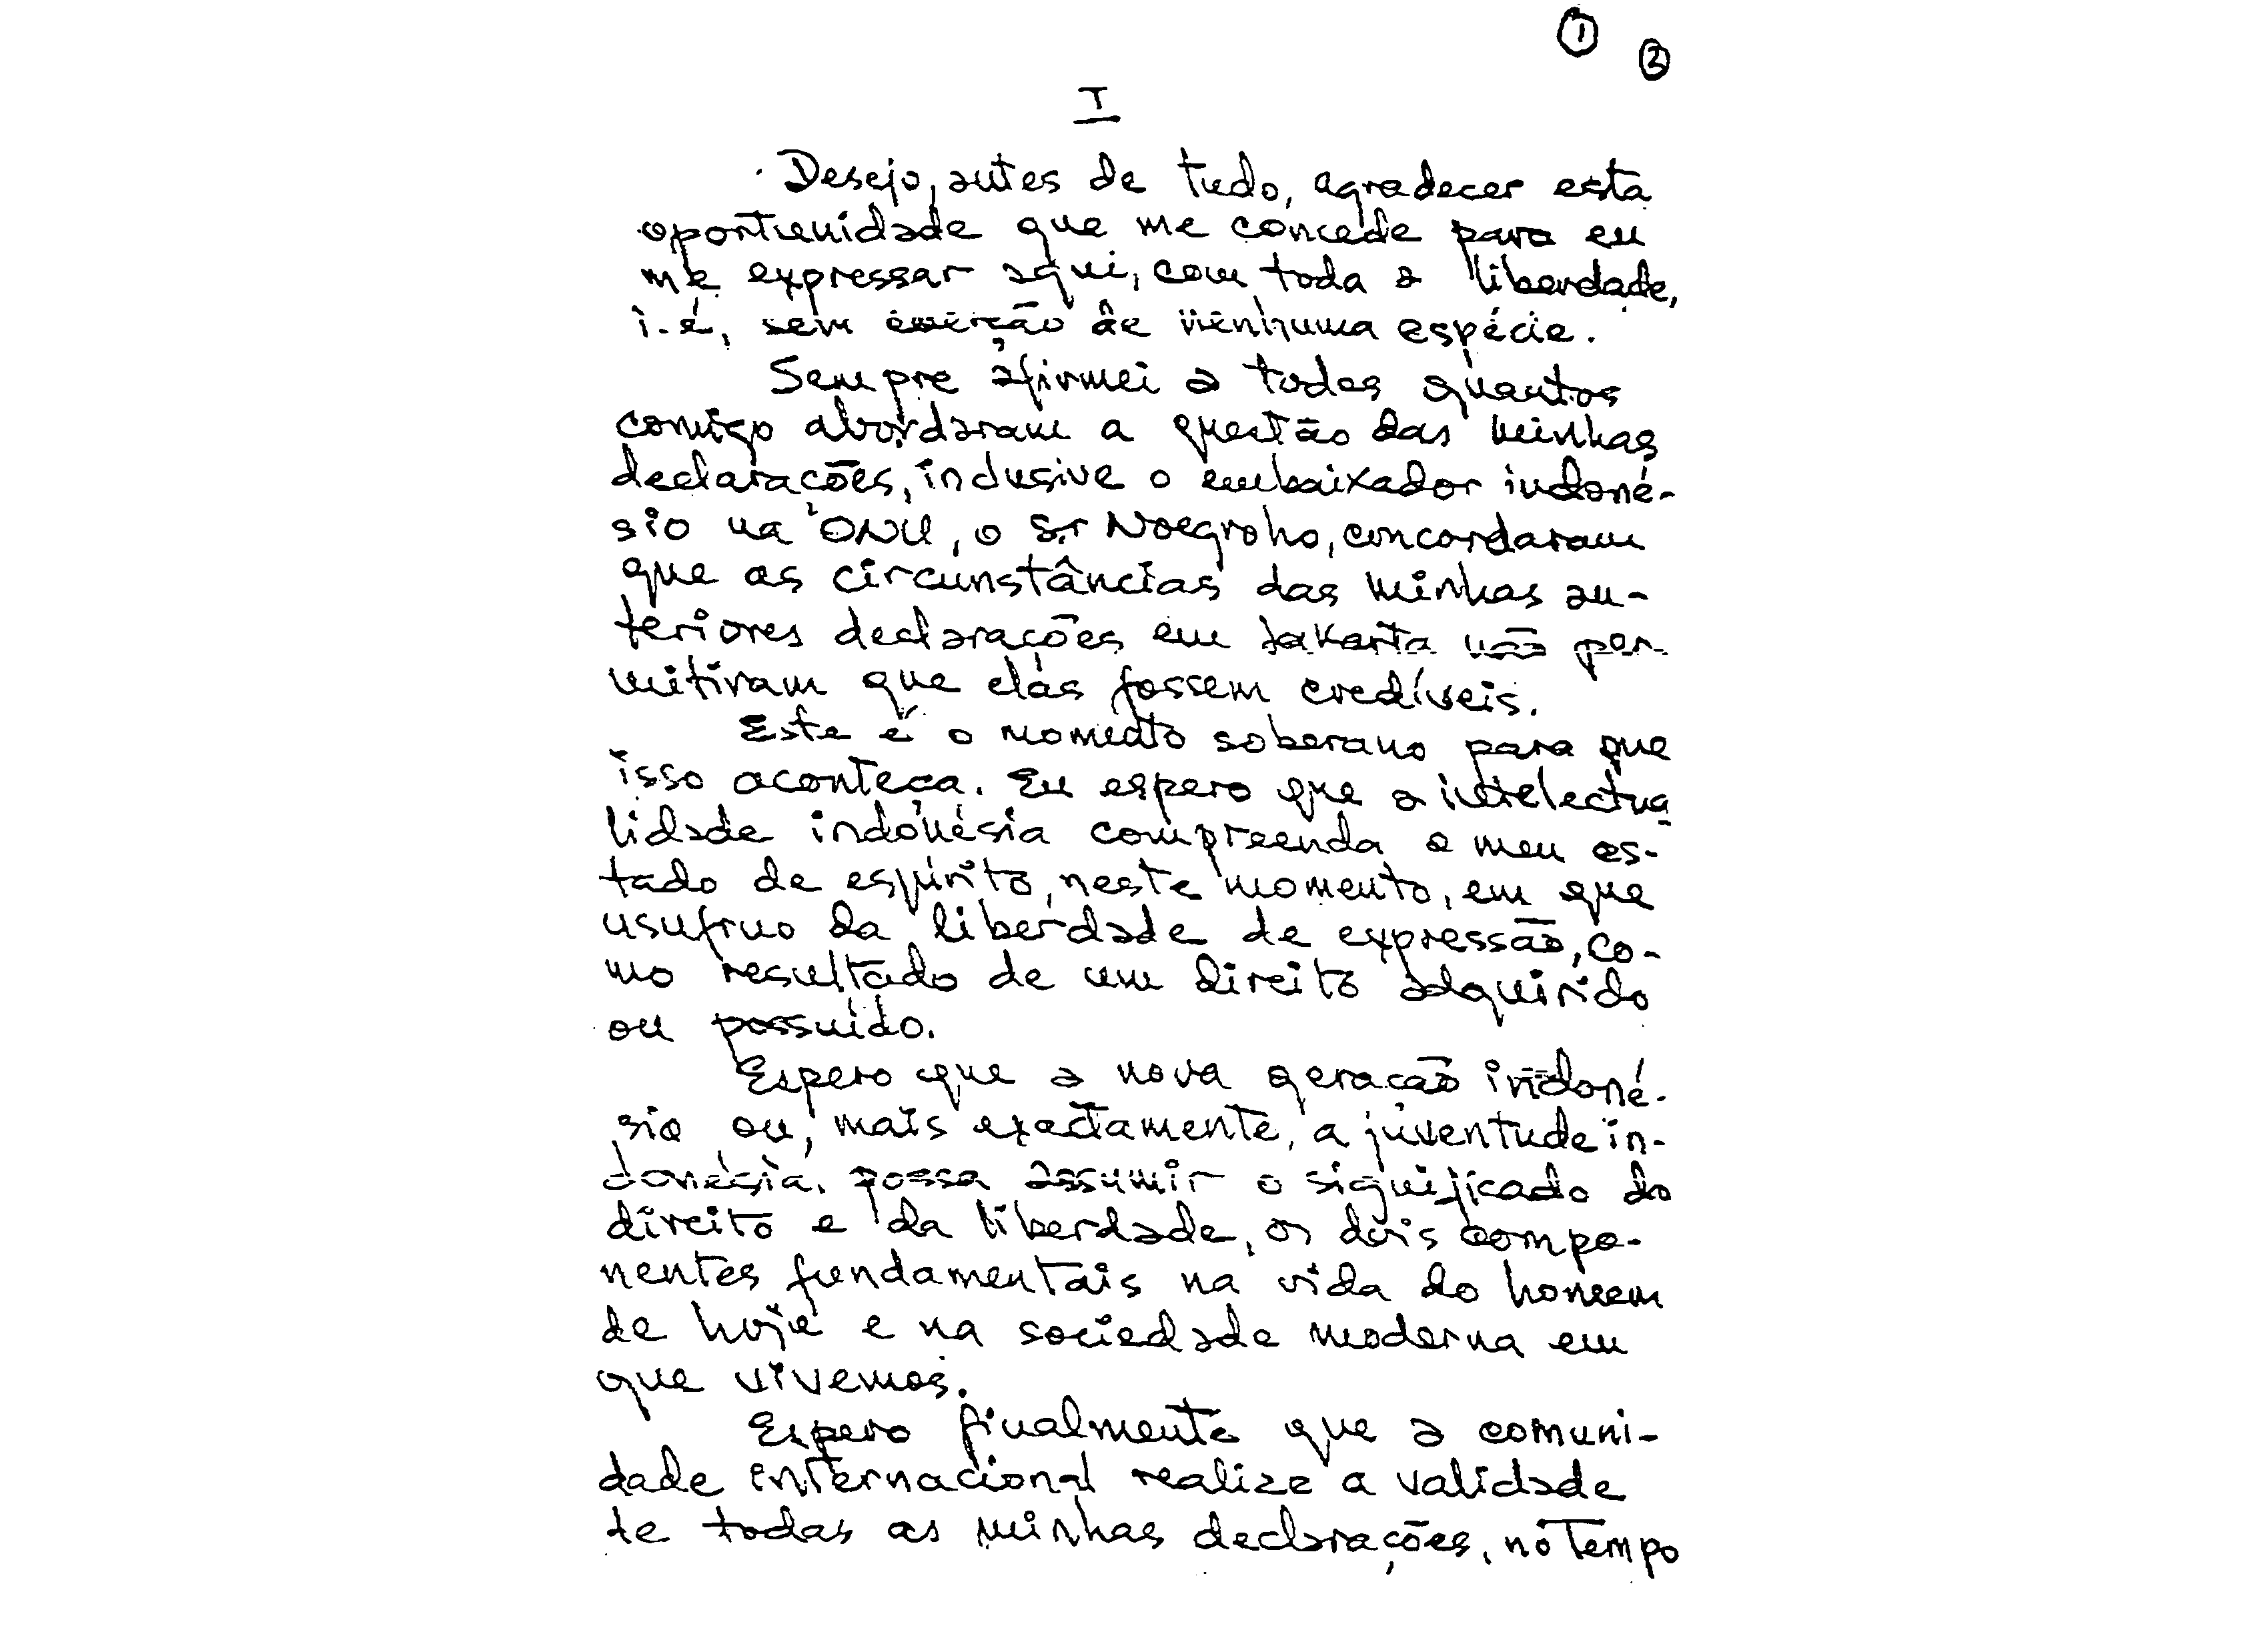 ① ②
I
Desejo, antes de tudo, agradecer esta
oportunidade que me concede para eu
me expressar aqui, com toda a liberdade,
i.é, sem coerção de nenhuma espécie.
Sempre afirmei a todos quantos
comigo abordaram a questão das minhas
declarações, inclusive o embaixador indoné-
sio na ONU, o Sr Noegroho, concordaram
que as circunstâncias das minhas an-
teriores declarações em Jakarta não per-
mitiram que elas fossem credíveis.
Este é o momento soberano para que
isso aconteça. Eu espero que a intelectua
lidade indonésia compreenda o meu es-
tado de espírito, neste momento, em que
usufruo da liberdade de expressão, co-
mo resultado de um direito adquirido
ou possuído.
Espero que a nova geração indoné-
sia ou, mais exactamente, a juventude in-
donésia, possa assumir o significado do
direito e da liberdade, os dois compo-
nentes fundamentais na vida do homem
de hoje e na sociedade moderna em
que vivemos.
Espero finalmente que a comuni-
dade internacional realize a validade
de todas as minhas declarações, no tempo